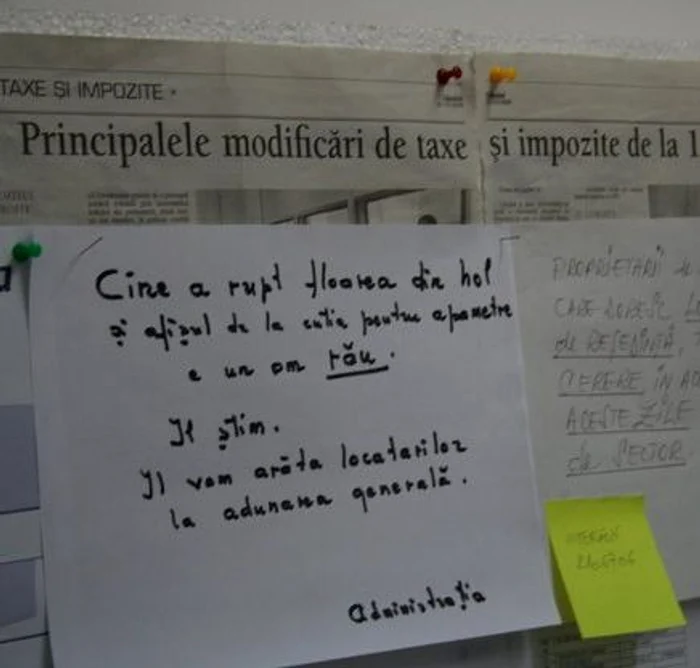 TAXE ȘI IMPOZITE
Principalele modificări de taxe și impozite de la 1
Cine a rupt floarea din hol
și afișul de la cutia pentru apometre
e un om rău.
Il știm.
Il vom arăta locatarilor
la adunarea generală.
Administrația
PROPRIETARII
CARE DORESC
de
CERERE ÎN
ACESTE ZILE
de SECTOR